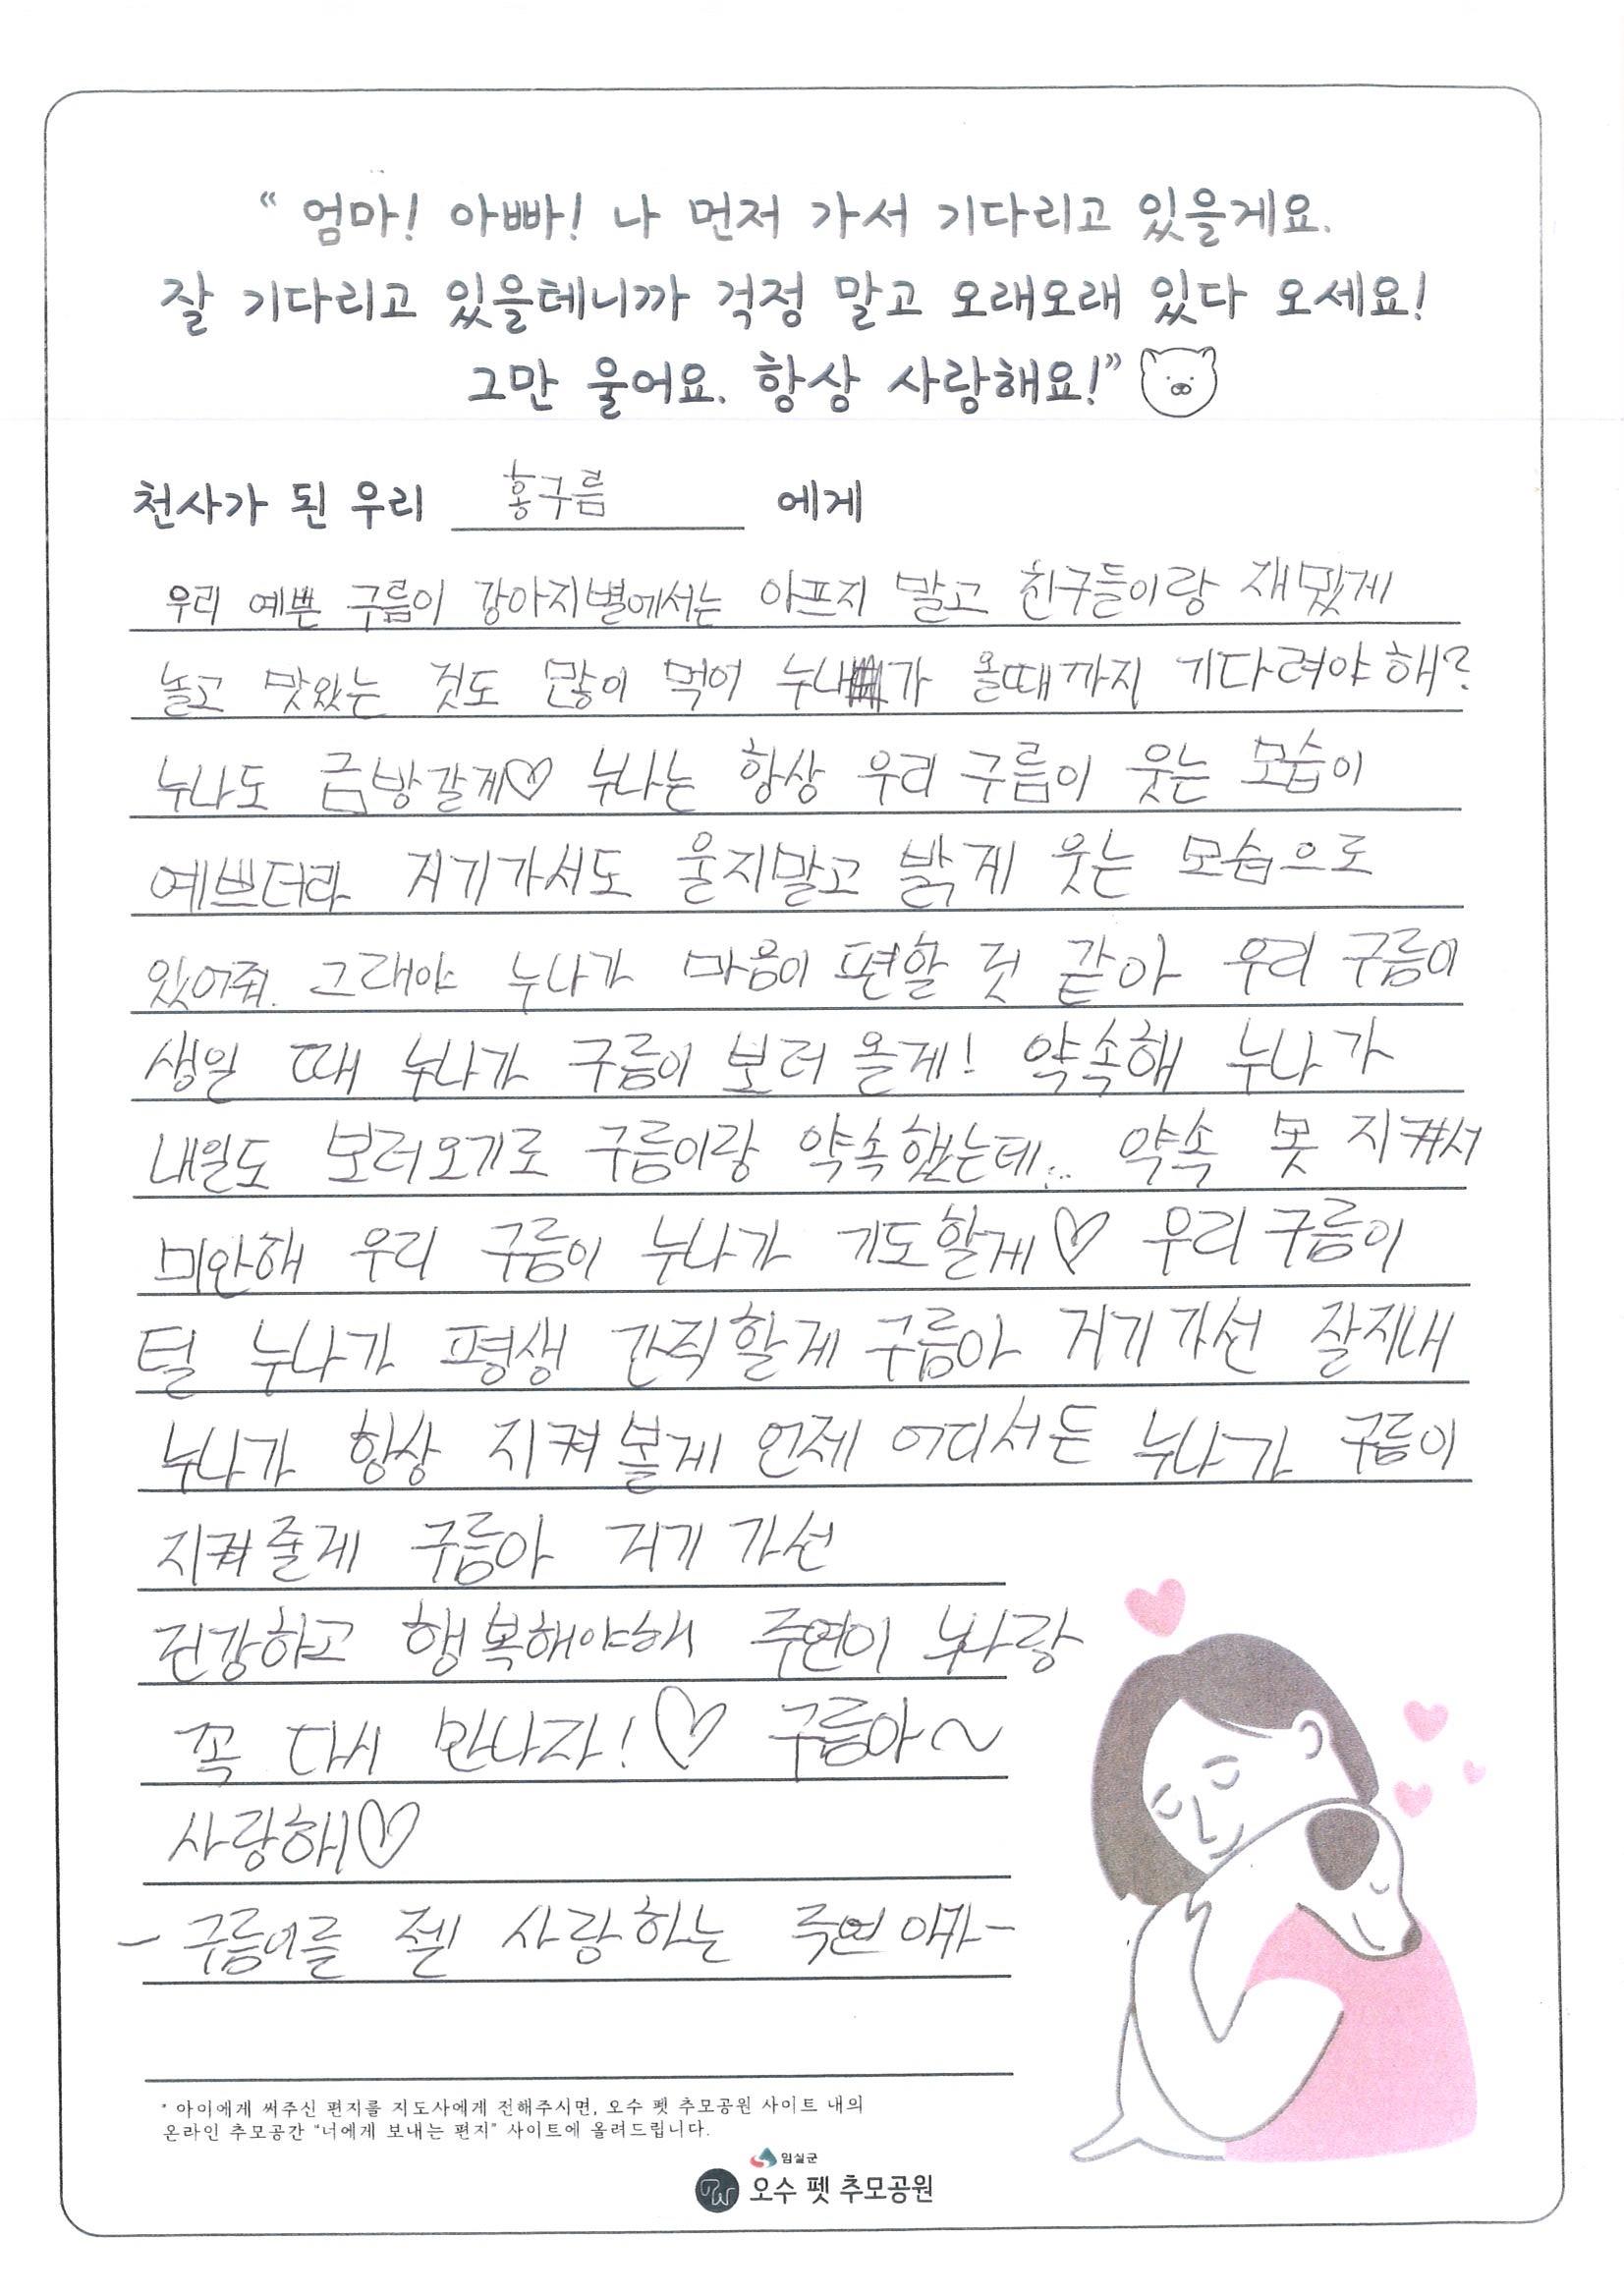 “ 엄마! 아빠! 나 먼저 가서 기다리고 있을게요.
잘 기다리고 있을테니까 걱정 말고 오래오래 있다 오세요!
그만 울어요. 항상 사랑해요!”
천사가 된 우리 홍구름 에게
우리 예쁜 구름이 강아지별에서는 아프지 말고 친구들이랑 재밌게
놀고 맛있는 것도 많이 먹어 누나가 올때까지 기다려야해?
누나도 금방갈게♡ 누나는 항상 우리 구름이 웃는 모습이
예쁘더라 거기가서도 울지말고 밝게 웃는 모습으로
있어줘. 그래야 누나가 마음이 편할 것 같아 우리 구름이
생일 때 누나가 구름이 보러 올게! 약속해 누나가
내일도 보러오기로 구름이랑 약속했는데... 약속 못 지켜서
미안해 우리 구름이 누나가 기도할게♡ 우리 구름이
털 누나가 평생 간직할게 구름아 거기가선 잘지내
누나가 항상 지켜볼게 언제 어디서든 누나가 구름이
지켜줄게 구름아 거기 가선
건강하고 행복해야해 주연이 누나랑
꼭 다시 만나자!♡ 구름아~
사랑해♡
- 구름이를 젤 사랑하는 주연이가-
* 아이에게 써주신 편지를 지도사에게 전해주시면, 오수 펫 추모공원 사이트 내의
온라인 추모공간 “너에게 보내는 편지” 사이트에 올려드립니다.
임실군
오수 펫 추모공원